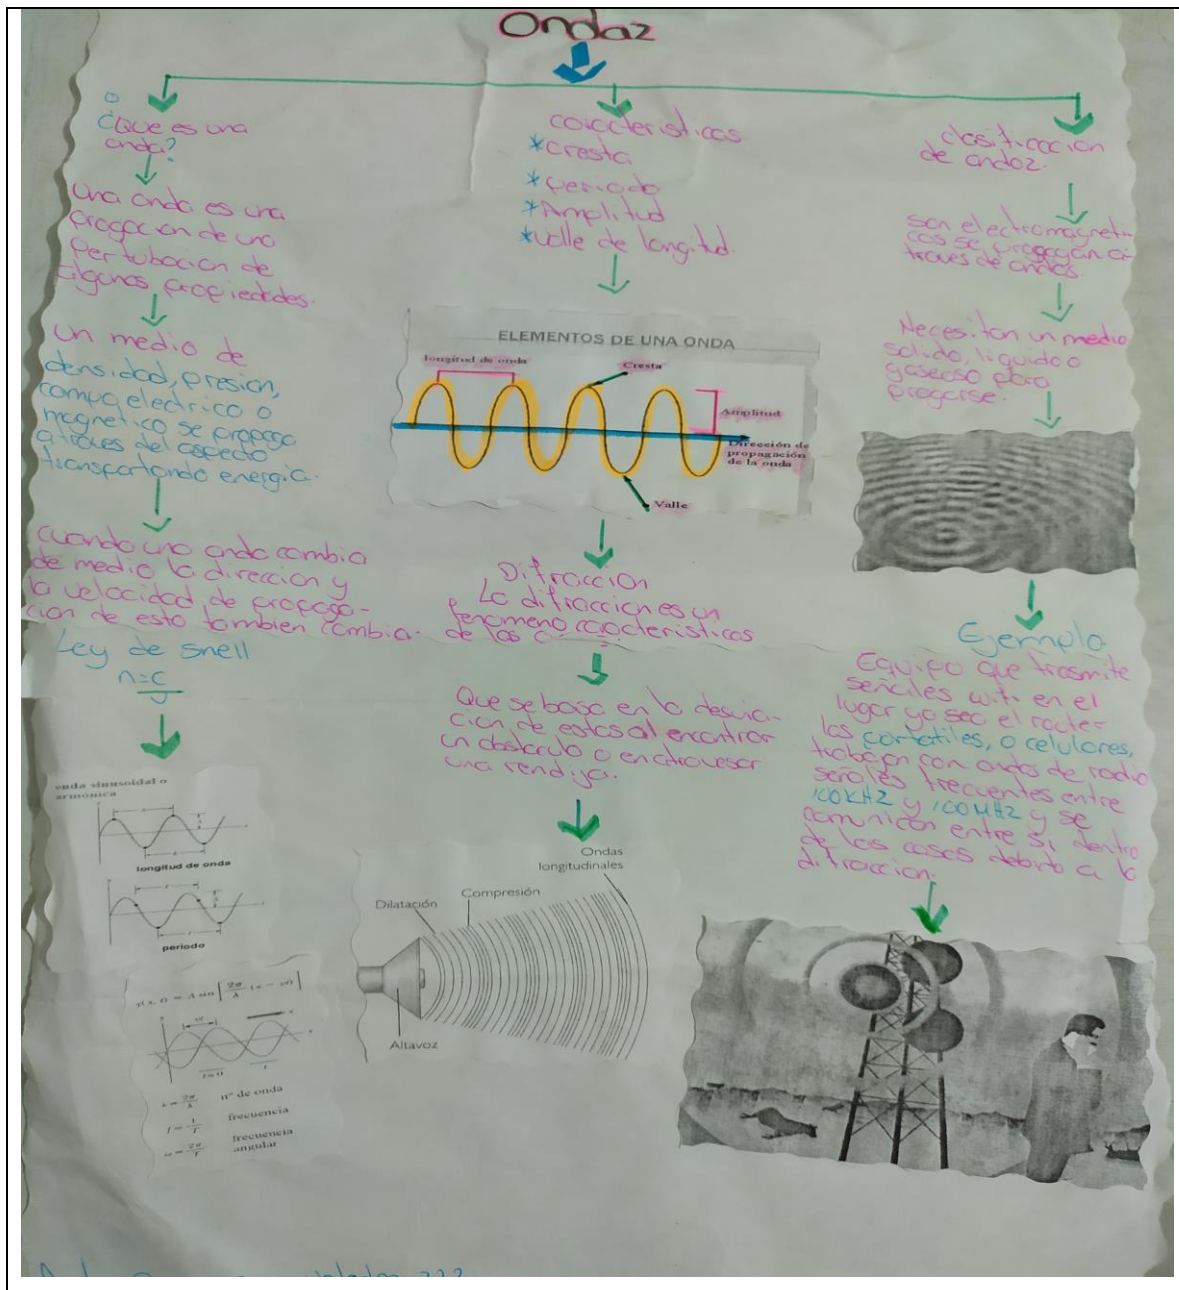 Ondaz
¿Que es una
onda?
una onda es una
progacion de una
pertubacion de
algunas propiedades.
un medio de
densidad, presion,
campo electrico o
magnetico se propaga
atraves del aspecto
transportando energia.
cuando una onda cambia
de medio la direccion y
la velocidad de propaga-
cion de esto tambien cambia.
Ley de snell
n=c
onda sinusoidal o
armónica
longitud de onda
periodo
t=0
nº de onda
frecuencia
frecuencia
angular
caracteristicas
*cresta
*periodo
*Amplitud
*valle de longitud.
ELEMENTOS DE UNA ONDA
longitud de onda
Cresta
Amplitud
Dirección de
propagación
de la onda
Valle
Difraccion
La difraccion es un
fenomeno caracteristicos
de las
Que se basa en la desvia-
cion de estas al encontrar
un obstaculo o en atravesar
una rendija.
Ondas
longitudinales
Compresión
Dilatación
Altavoz
clasificacion
de ondaz.
son electromagneti-
cas se propagan a-
traves de ondas.
Necesitan un medio
solido, liquido o
gaseoso para
progarse.
Ejemplo
Equipo que trasmite
señales wifi en el
lugar ya sea el router
las portatiles, o celulares,
trabajan con ondas de radio
señales frecuentes entre
100KHZ y 100MHZ y se
comunican entre si dentro
de las casas debido a la
difraccion.